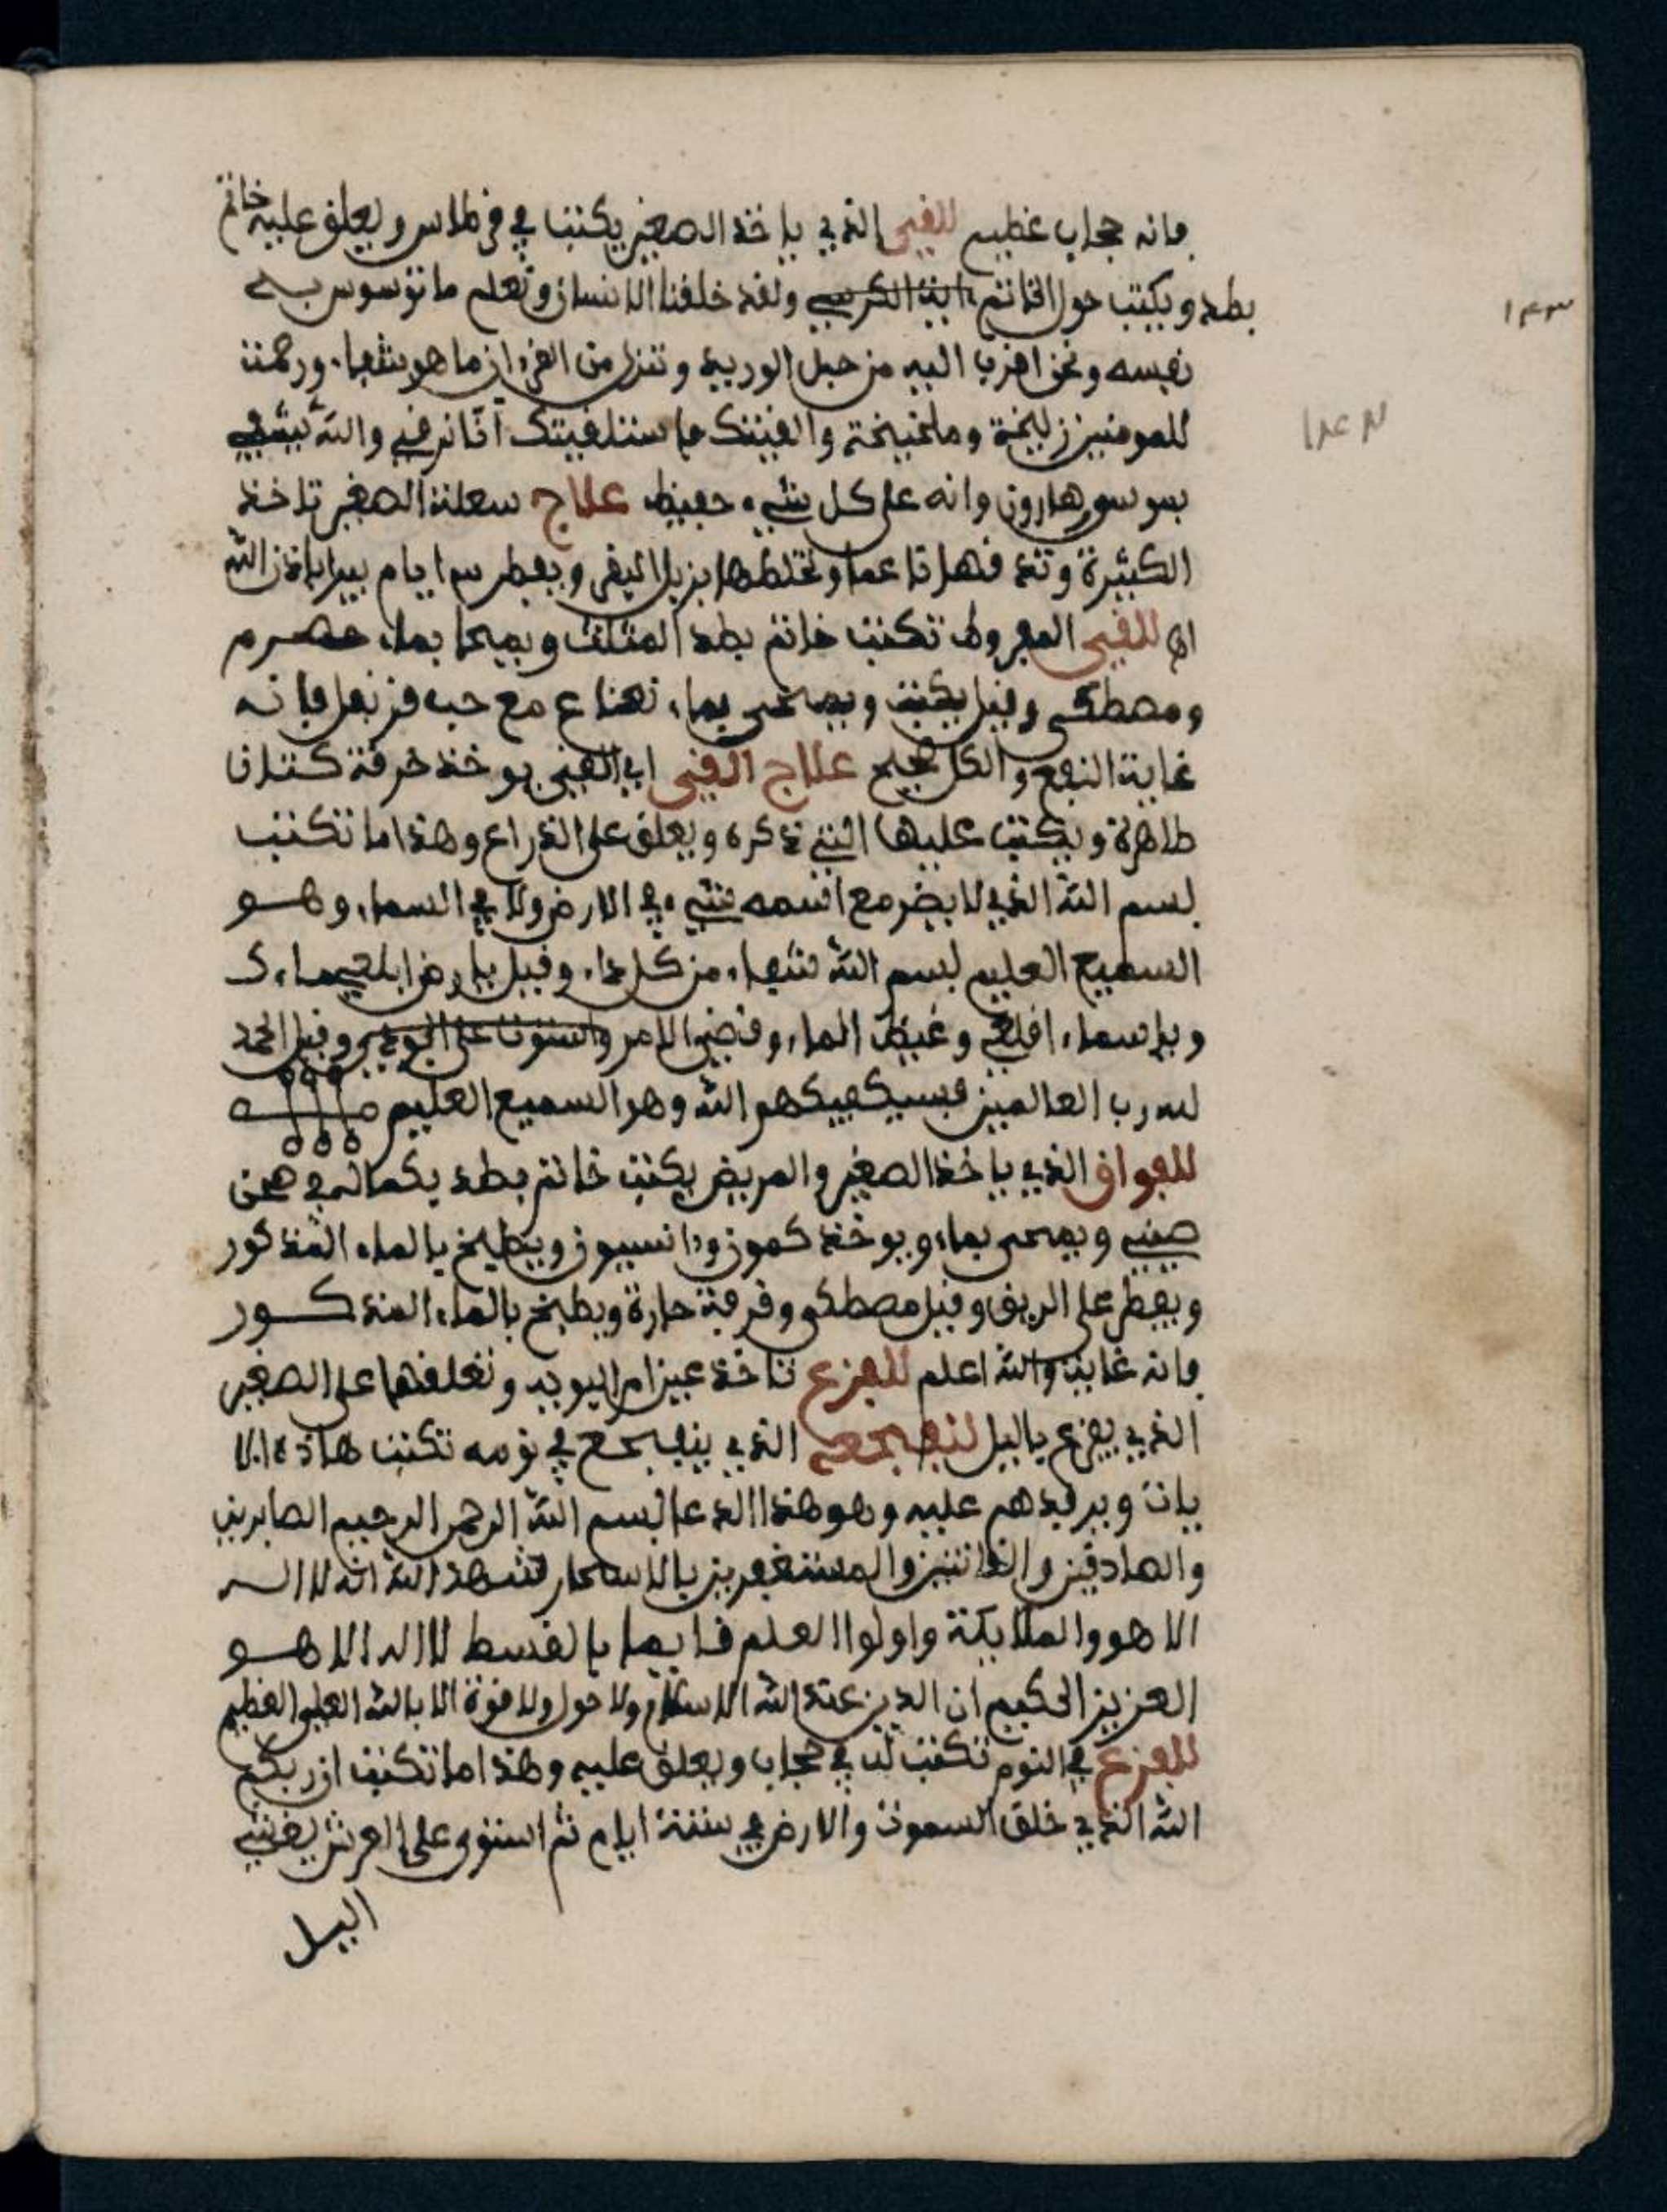 فانه حجاب عظيم للقيء الذي ياخذ الصغير يكتب في قرطاس ويعلق عليه خاتم
بطد ويكتب حول الخاتم اية الكرسي ولقد خلقنا الانسان ونعلم ما توسوس به
نفسه ونحن اقرب اليه من حبل الوريد وننزل من القرءان ما هو شفاء ورحمة
للمومنين والله يشفي
وانه على كل شيء حفيظ علاج سعلة الصغير تاخذ
الكثيرة وتدقها ناعما وتخلطها بزيل البقر ويفطر ايام يبرا باذن الله
للقيء المعروف تكتب خاتم بطد المثلث ويمحا بماء حصرم
ومصطكى وقيل يكتب ويمحى بماء نعناع مع حب قرنفل فانه
غاية النفع والكل صحيح علاج القيء اي القيء يوخذ خرقة كتان
طاهرة ويكتب عليها التي ذكره ويعلق على الذراع وهذا ما تكتب
بسم الله الذي لا يضر مع اسمه شيء في الارض ولا في السماء وهو
السميع العليم بسم الله شفاء من كل داء وقيل يا ارض ابلعي ماءك
ويا سماء اقلعي وغيض الماء وقضي الامر واستوت على الجودي وقيل الحمد
لله رب العالمين فسيكفيكهم الله وهو السميع العليم
للفواق الذي ياخذ الصغير والمريض يكتب خاتم بطد بكماله في صحن
صيني ويمحى بماء ويوخذ كمون وانسيون ويطبخ بالماء المذكور
ويفطر على الريق وقيل مصطكى وقرفة حارة ويطبخ بالماء المذكور
فانه غاية والله اعلم للفزع تاخذ عينا من البوبه وتعلقها على الصغير
الذي يفزع باليل الذي في نومه تكتب هاذه الا
يات وبرفدهم عليه وهو هذا الدعا بسم الله الرحمن الرحيم الصابرين
والصادقين والقانتين والمستغفرين بالاسحار شهد الله انه لا اله
الا هو والملايكة واولوا العلم قايما بالقسط لا اله الا هو
العزيز الحكيم ان الدين عند الله الاسلام ولا حول ولا قوة الا بالله العلي العظيم
للفزع في النوم تكتب له في حجاب ويعلق عليه وهذا ما تكتب ان ربكم
الله الذي خلق السموت والارض في ستة ايام ثم استوى على العرش يغشي
اليل
١٤٣